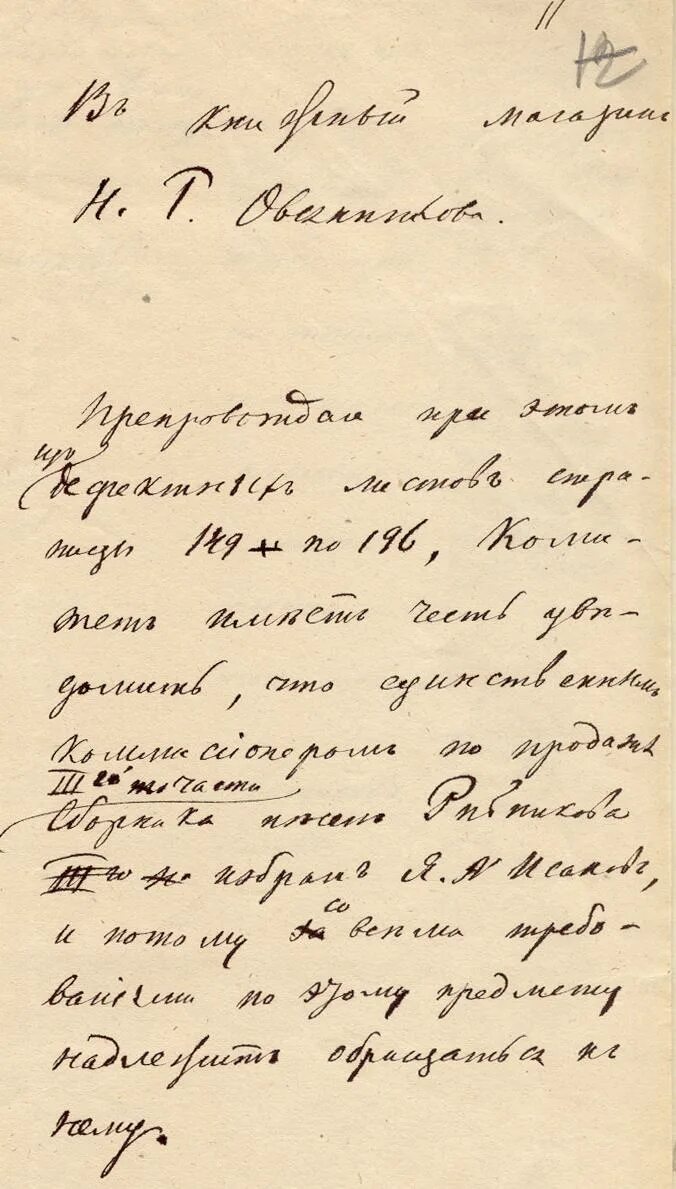 11
12
Въ книжный магазинъ
Н. Г. Овсянникова.
Препровождая при этомъ
дефектныхъ листовъ стра-
ницы 149 по 196, Коми-
тетъ имѣетъ честь уве-
домить, что единственнымъ
коммисіонеромъ по продажѣ
III ей части
Сборника пѣсень Рыбникова
III избранъ Я. А Исаковъ,
и потому со всеми требо-
ваніями по этому предмету
надлежитъ обращаться къ
нему.